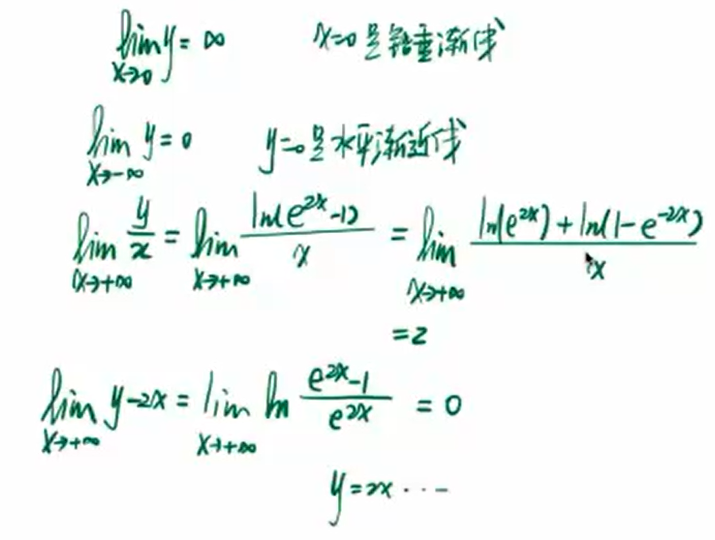 lim y = ∞ x=0 是铅垂渐线
x→0
lim y = 0 y=0 是水平渐近线
x→-∞
lim y/x = lim ln(e^{2x}-1)/x = lim (ln(e^{2x}) + ln(1-e^{-2x}))/x
x→+∞ x→+∞ x→+∞
= 2
lim y-2x = lim ln (e^{2x}-1)/(e^{2x}) = 0
x→+∞ x→+∞
y=2x ...